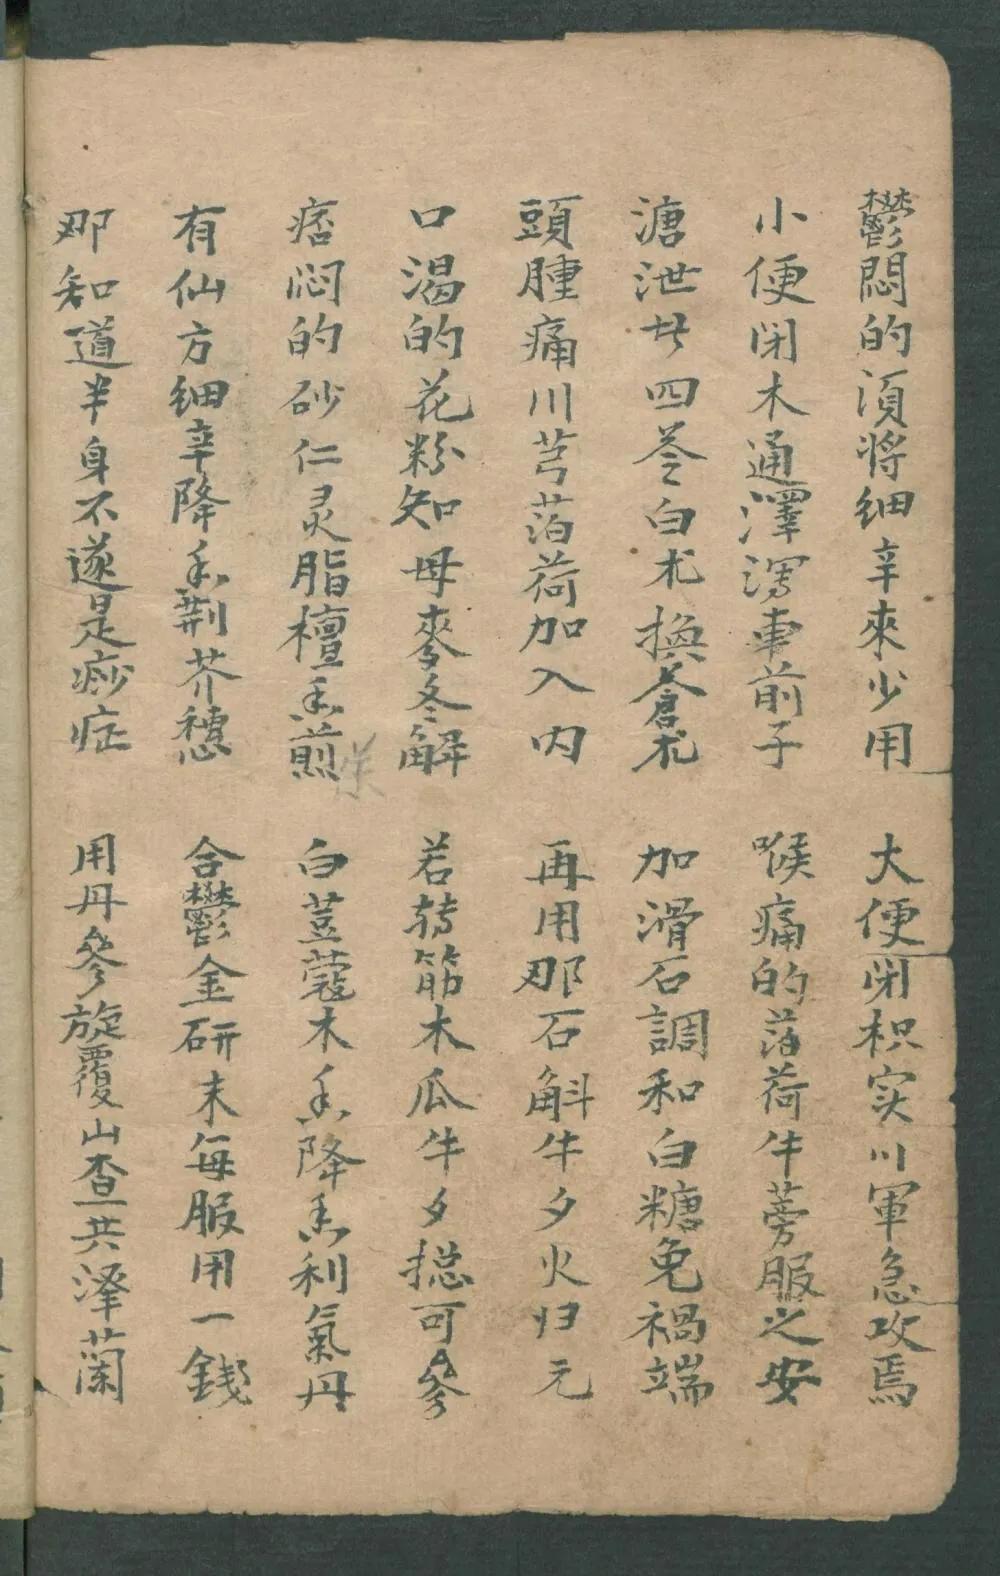 鬱悶的須將细辛來少用　大便闭枳实川軍急攻焉
小便闭木通澤瀉車前子　喉痛的萡荷牛蒡服之安
溏泄廿四苓白朮換蒼朮　加滑石調和白糖免禍端
頭腫痛川芎萡荷加入内　再用那石斛牛夕火归元
口渴的花粉知母麥冬解　若转筋木瓜牛夕捴可參
痞闷的砂仁灵脂檀香煎　白荳蔻木香降香利氣丹
有仙方细辛降香荆芥穗　合鬱金研末每服用一錢
那知道半身不遂是痧症　用丹參旋覆山查共泽蘭